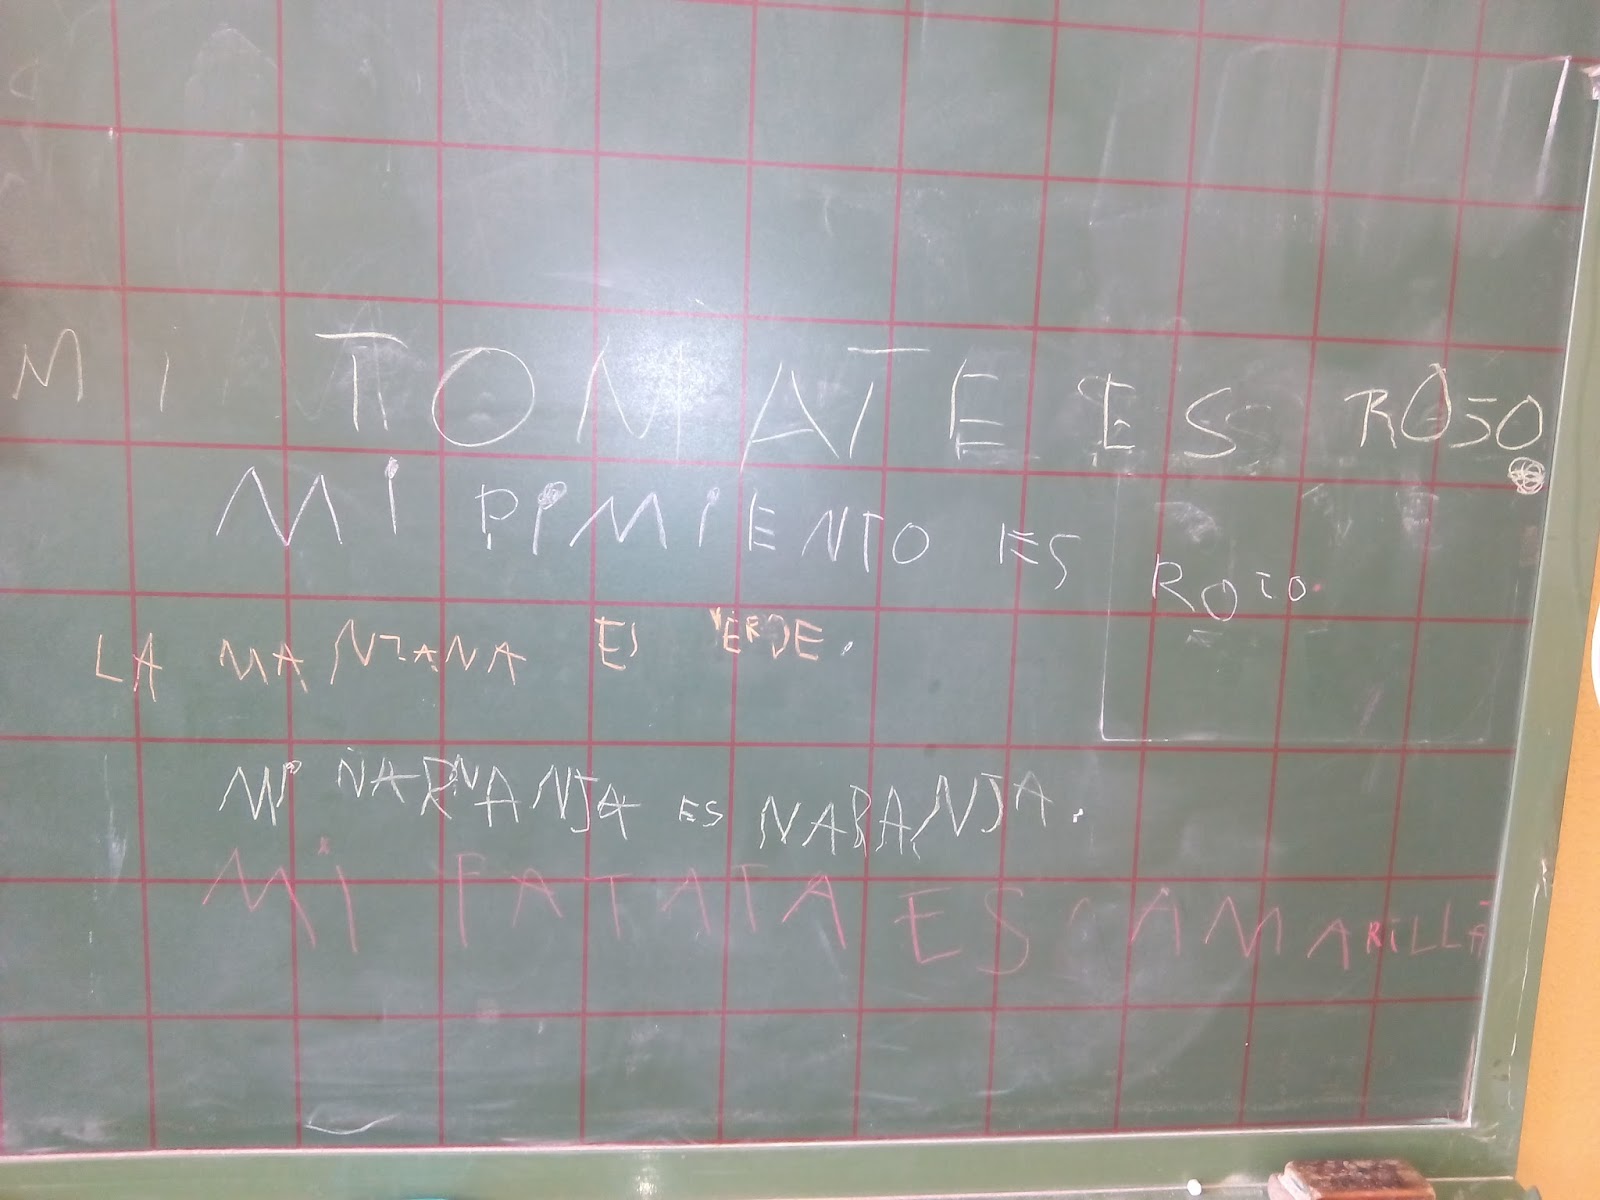 MI TOMATE ES ROJO.
MI PIMIENTO ES ROJO.
LA MANZANA ES VERDE.
MI NARNANJA ES NARANJA.
MI PATATA ES AMARILLA